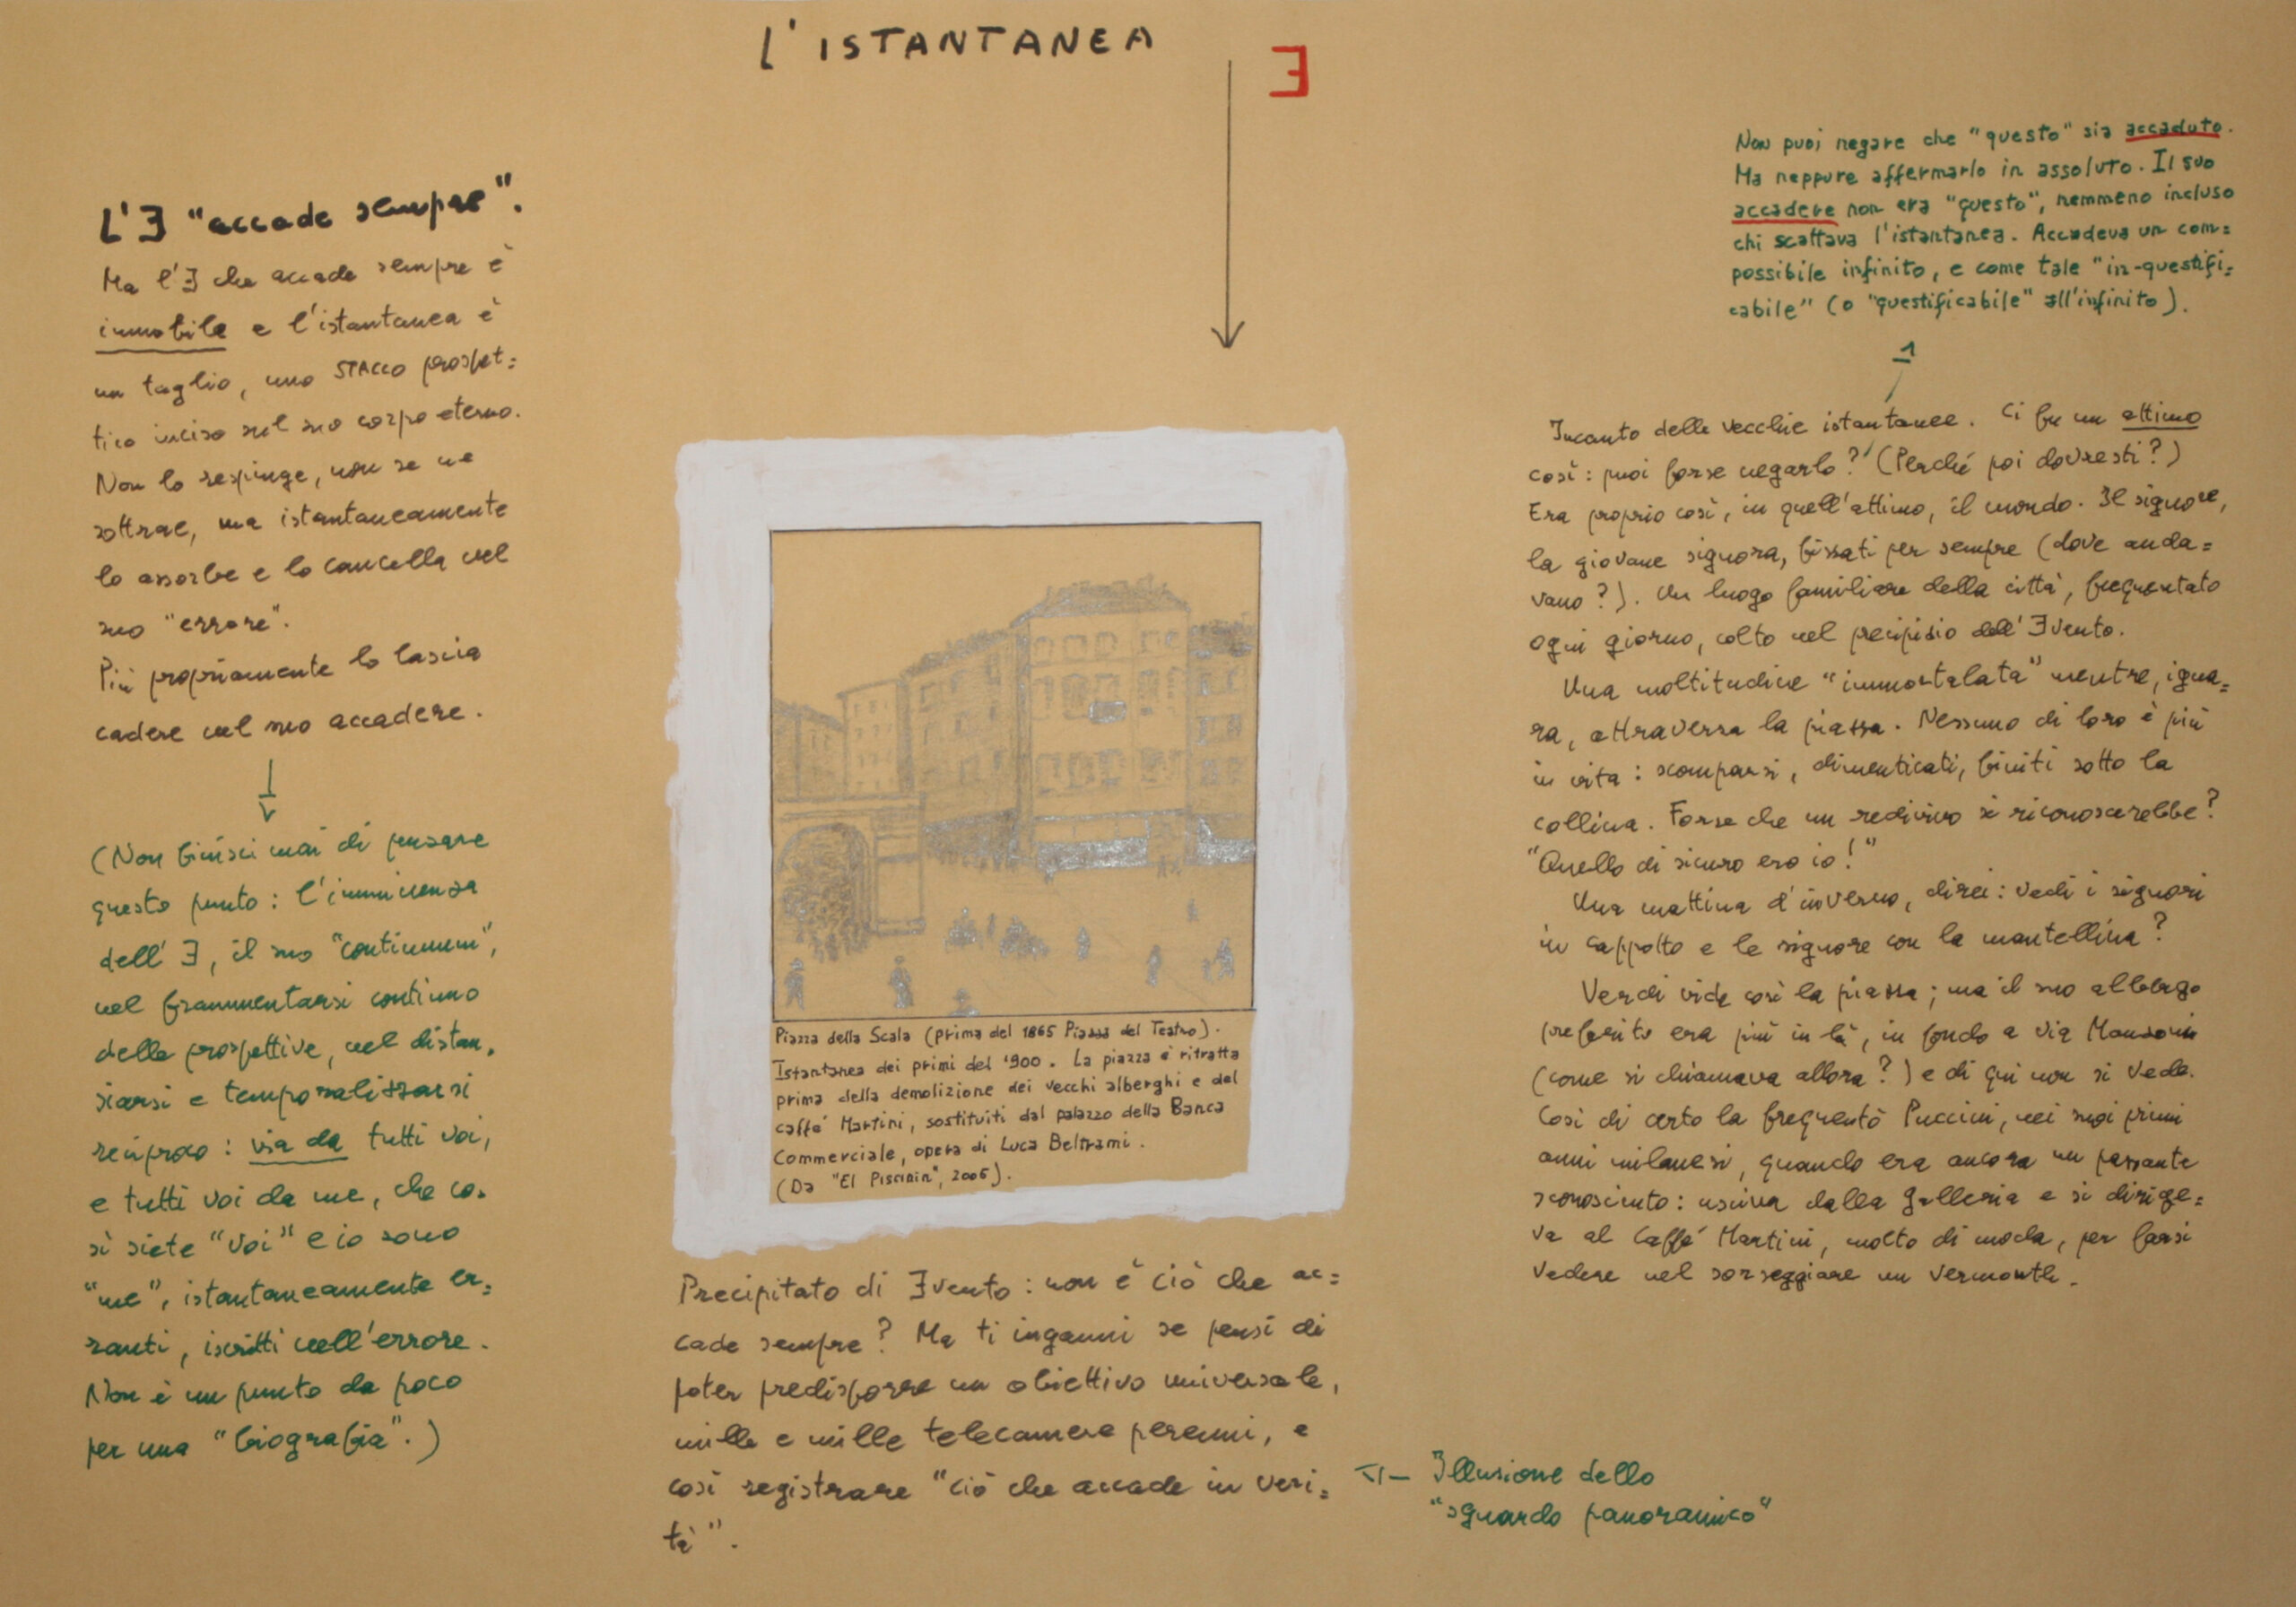 L'ISTANTANEA
Ǝ
L'Ǝ "accade sempre".
Ma l'Ǝ che accade sempre è
immobile e l'istantanea è
un taglio, uno STACCO prospet=
tico inciso sul suo corpo eterno.
Non lo respinge, non se ne
sottrae, ma istantaneamente
lo assorbe e lo cancella nel
suo "errore".
Più propriamente lo lascia
cadere nel suo accadere.
(Non finisci mai di pensare
questo punto: l'imminenza
dell'Ǝ, il suo "continuum",
nel frammentarsi continuo
delle prospettive, nel distan=
ziarsi e temporalizzarsi
reciproco: via da tutti voi,
e tutti voi da me, che co=
sì siete "voi" e io sono
"me", istantaneamente er=
ranti, iscritti nell'errore.
Non è un punto da poco
per una "biografia".)
Piazza della Scala (prima del 1865 Piazza del Teatro).
Istantanea dei primi del '900. La piazza è ritratta
prima della demolizione dei vecchi alberghi e del
caffé Martini, sostituiti dal palazzo della Banca
Commerciale, opera di Luca Beltrami.
(Da "El Piscinin", 2006).
Precipitato di Ǝvento: non è ciò che ac=
cade sempre? Ma ti inganni se pensi di
poter predisporre un obiettivo universale,
mille e mille telecamere perenni, e
così registrare "ciò che accade in veri=
tà".
Illusione dello
"sguardo panoramico"
Non puoi negare che "questo" sia accaduto.
Ma neppure affermarlo in assoluto. Il suo
accadere non era "questo", nemmeno incluso
chi scattava l'istantanea. Accadeva un com=
possibile infinito, e come tale "in-questifi=
cabile" (o "questificabile" all'infinito).
1
Incanto delle vecchie istantanee. Ci fu un attimo
così: puoi forse negarlo? (Perché poi dovresti?)
Era proprio così, in quell'attimo, il mondo. Il signore,
la giovane signora, fissati per sempre (dove anda=
vano?). Un luogo familiare della città, frequentato
ogni giorno, colto nel precipizio dell'Ǝvento.
Una moltitudine "immortalata" mentre, igna=
ra, attraversa la piazza. Nessuno di loro è più
in vita: scomparsi, dimenticati, finiti sotto la
collina. Forse che un redivivo si riconoscerebbe?
"Quello di sicuro ero io!"
Una mattina d'inverno, direi: vedi i signori
in cappotto e le signore con la mantellina?
Verdi vide così la piazza; ma il suo albergo
preferito era più in là, in fondo a via Manzoni
(come si chiamava allora?) e di qui non si vede.
Così di certo la frequentò Puccini, nei suoi primi
anni milanesi, quando era ancora un passante
sconosciuto: usciva dalla Galleria e si dirige=
va al Caffé Martini, molto di moda, per farsi
vedere nel sorseggiare un Vermouth.